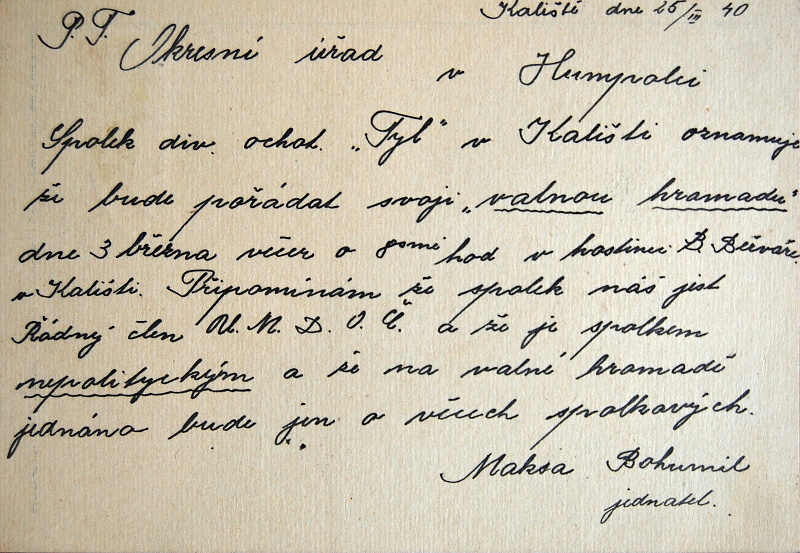 Kaliště dne 25/III 40
P. T.
Okresní úřad
v Humpolci
Spolek div. ochot. „Tyl“ v Kališti oznamuje
že bude pořádat svoji „valnou hramadu“
dne 3 března večer o osmé hod v hostinci B Berváře
v Kališti. Připomínám že spolek náš jest
Řádný člen „U. M. D. O. Č.“ a že je spolkem
nepolityckým a že na valné hramadě
jednáno bude jen o věcech spolkavých.
Maksa Bohumil
jednatel.